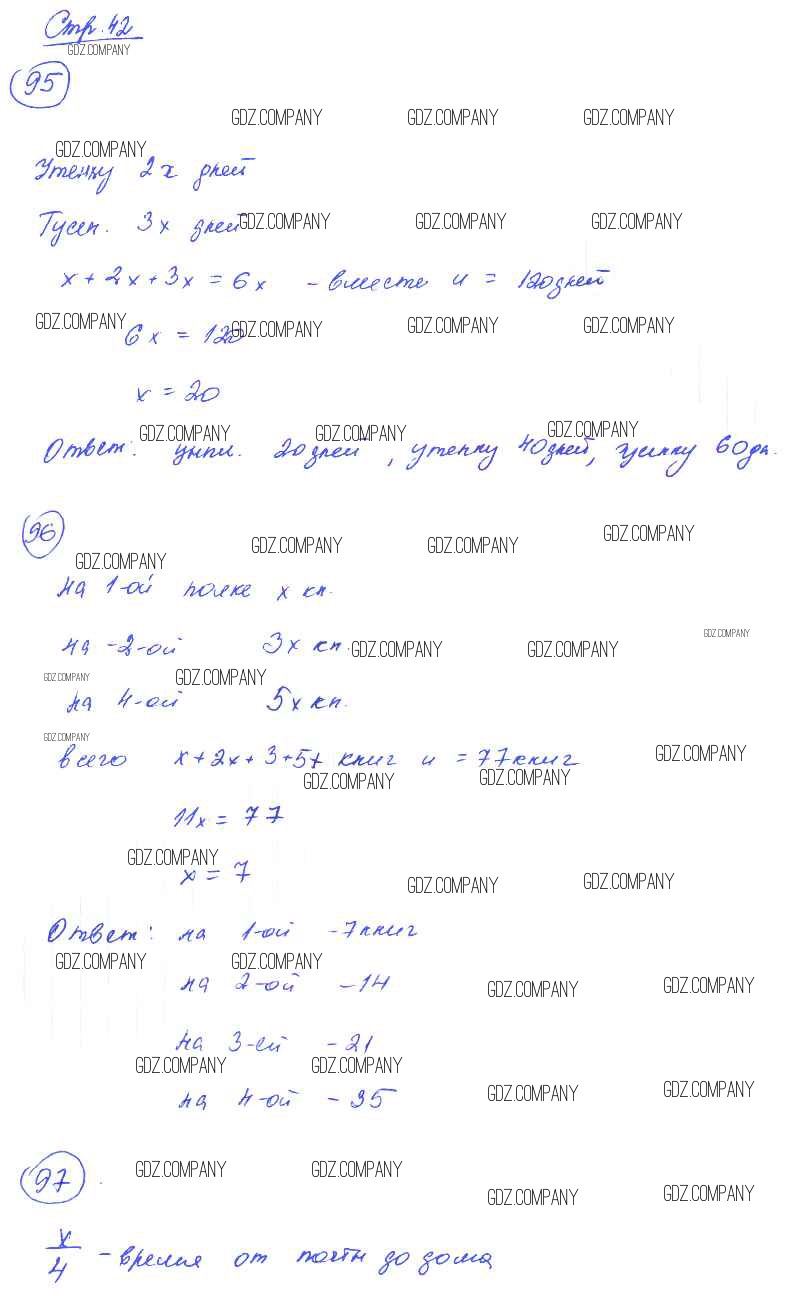 Стр. 42
GDZ.COMPANY
95
GDZ.COMPANY GDZ.COMPANY GDZ.COMPANY
GDZ.COMPANY
Утенку 2x дней
Гусен. 3x дней GDZ.COMPANY GDZ.COMPANY GDZ.COMPANY
x + 2x + 3x = 6x - вместе и = 120 дней
GDZ.COMPANY GDZ.COMPANY GDZ.COMPANY GDZ.COMPANY
6x = 120
x = 20
GDZ.COMPANY GDZ.COMPANY GDZ.COMPANY
Ответ: цыпл. 20 дней, утенку 40 дней, гусенку 60 дн.
96
GDZ.COMPANY GDZ.COMPANY GDZ.COMPANY GDZ.COMPANY
на 1-ой полке x кн.
на -2-ой 3x кн. GDZ.COMPANY GDZ.COMPANY GDZ.COMPANY
GDZ.COMPANY GDZ.COMPANY
на 4-ой 5x кн.
GDZ.COMPANY
всего x + 2x + 3 + 5+ книг и = 77 книг GDZ.COMPANY
GDZ.COMPANY GDZ.COMPANY
11x = 77
GDZ.COMPANY
x = 7 GDZ.COMPANY GDZ.COMPANY
Ответ: на 1-ой - 7 книг
GDZ.COMPANY GDZ.COMPANY
на 2-ой - 14 GDZ.COMPANY GDZ.COMPANY
на 3-ей - 21
GDZ.COMPANY GDZ.COMPANY
на 4-ой - 35 GDZ.COMPANY GDZ.COMPANY
97
GDZ.COMPANY GDZ.COMPANY GDZ.COMPANY GDZ.COMPANY
x/4 - время от почты до дома